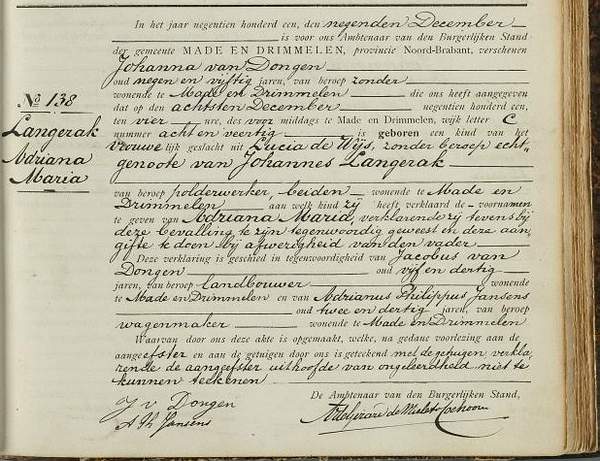 In het jaar negentien honderd een, den negenden December
is voor ons Ambtenaar van den Burgerlijken Stand
der gemeente MADE EN DRIMMELEN, provincie Noord-Brabant, verschenen
Johanna van Dongen
oud negen en vijftig jaren, van beroep zonder
wonende te Made en Drimmelen die ons heeft aangegeven
dat op den achtsten December negentien honderd een,
ten vier ure, des voor middags te Made en Drimmelen, wijk letter C
nummer acht en veertig is geboren een kind van het
vrouwelijk geslacht uit Lucia de Wijs, zonder beroep echt=
genoote van Johannes Langerak
van beroep polderwerker, beiden wonende te Made en
Drimmelen aan welk kind zij heeft verklaard de voornamen
te geven van Adriana Maria, verklarende zij tevens bij
deze bevalling te zijn tegenwoordig geweest en deze aan-
gifte te doen bij afwezigheid van den vader
Deze verklaring is geschied in tegenwoordigheid van Jacobus van
Dongen oud vijf en dertig
jaren, van beroep landbouwer wonende
te Made en Drimmelen en van Adrianus Philippus Jansens
oud twee en dertig jaren, van beroep
wagenmaker wonende te Made en Drimmelen
Waarvan door ons deze akte is opgemaakt, welke, na gedane voorlezing aan de
aangeefster en aan de getuigen door ons is geteekend met de getuigen, verkla=
rende de aangeefster uithoofde van ongeleerdheid niet te
kunnen teekenen
No 138
Langerak
Adriana
Maria
De Ambtenaar van den Burgerlijken Stand,
J v. Dongen
A Ph Jansens